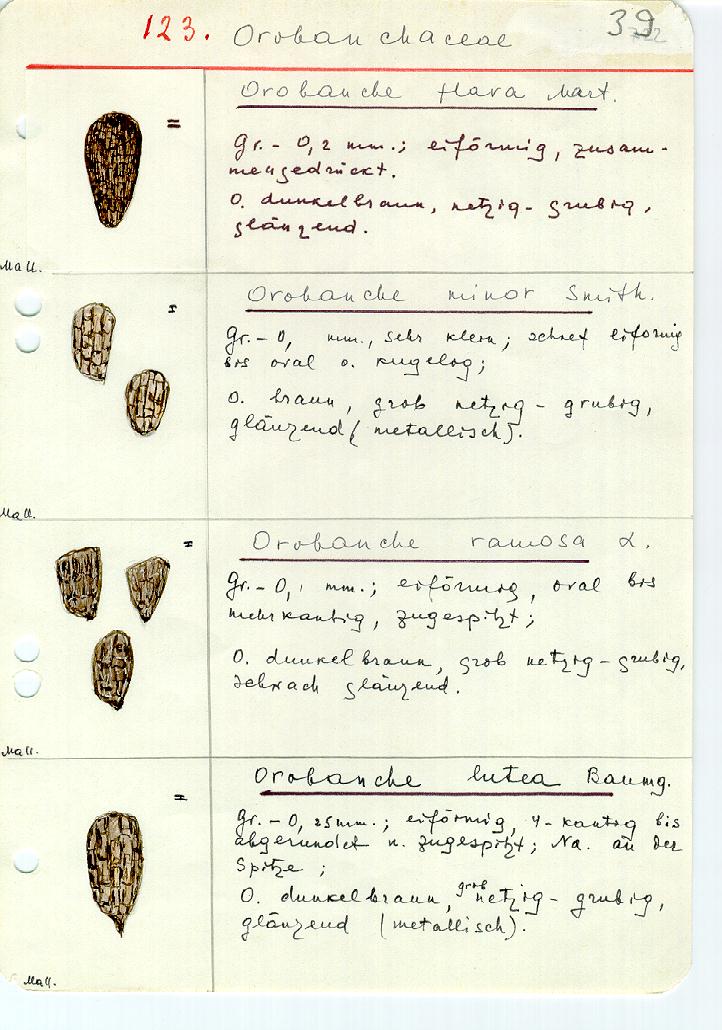 123. Orobanchaceae 39
Orobanche flava Mart.
=
Gr. - 0,2 mm.; eiförmig, zusam-
mengedrückt.
O. dunkelbraun, netzig - grubig,
glänzend.
Mall.
Orobanche minor Smith.
=
Gr. - 0, mm., sehr klein; schief eiförmig
bis oval o. kugelog;
O. braun, grob netzig - grubig,
glänzend (metallisch).
Mall.
Orobanche ramosa L.
=
Gr. - 0,1 mm.; eiförmig, oval bis
mehrkantig, zugespitzt;
O. dunkelbraun, grob netzig - grubig,
schwach glänzend.
Mall.
Orobanche lutea Baumg.
=
Gr. - 0,25 mm.; eiförmig, 4-kantig bis
abgerundet u. zugespitzt; Na. an der
Spitze;
O. dunkelbraun, grob netzig - grubig,
glänzend (metallisch).
Mall.